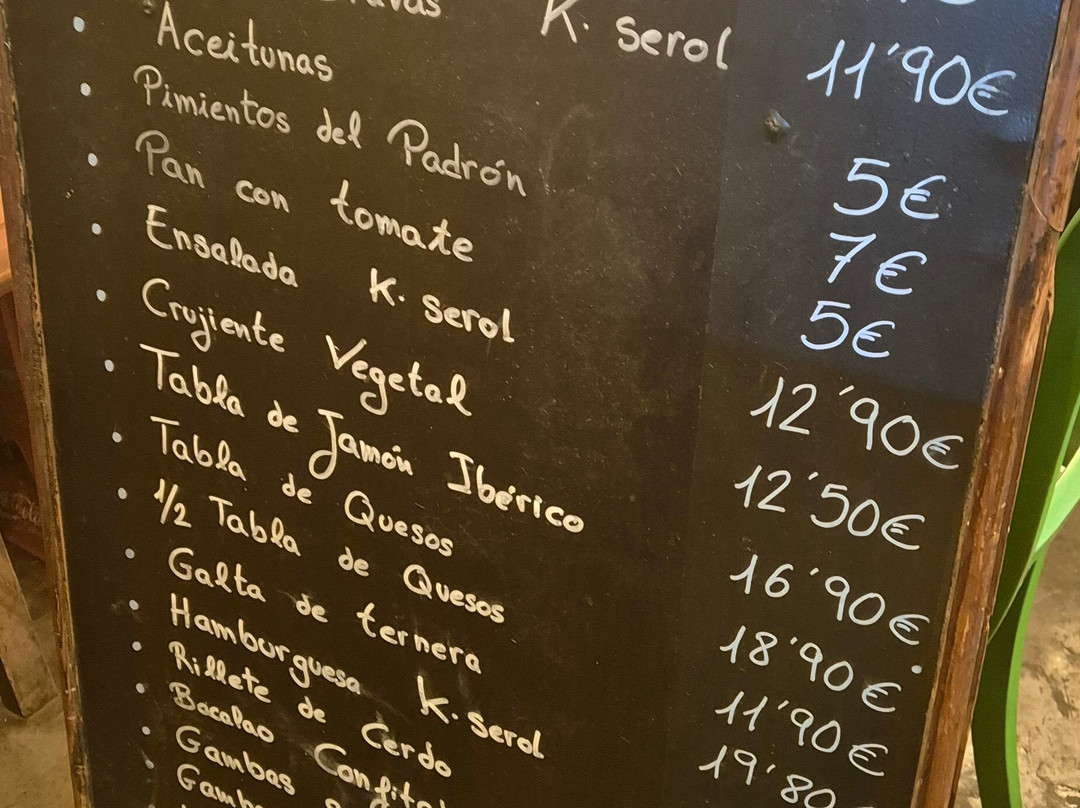 K. serol 11'90€
Aceitunas 5€
Pimientos del Padrón 7€
Pan con tomate 5€
Ensalada K. serol 12'90€
Crujiente Vegetal 12'50€
Tabla de Jamón Ibérico 16'90€
Tabla de Quesos 18'90€
1/2 Tabla de Quesos 11'90€
Galta de ternera 19'80
Hamburguesa K. serol
Rillete de Cerdo
Bacalao
Gambas